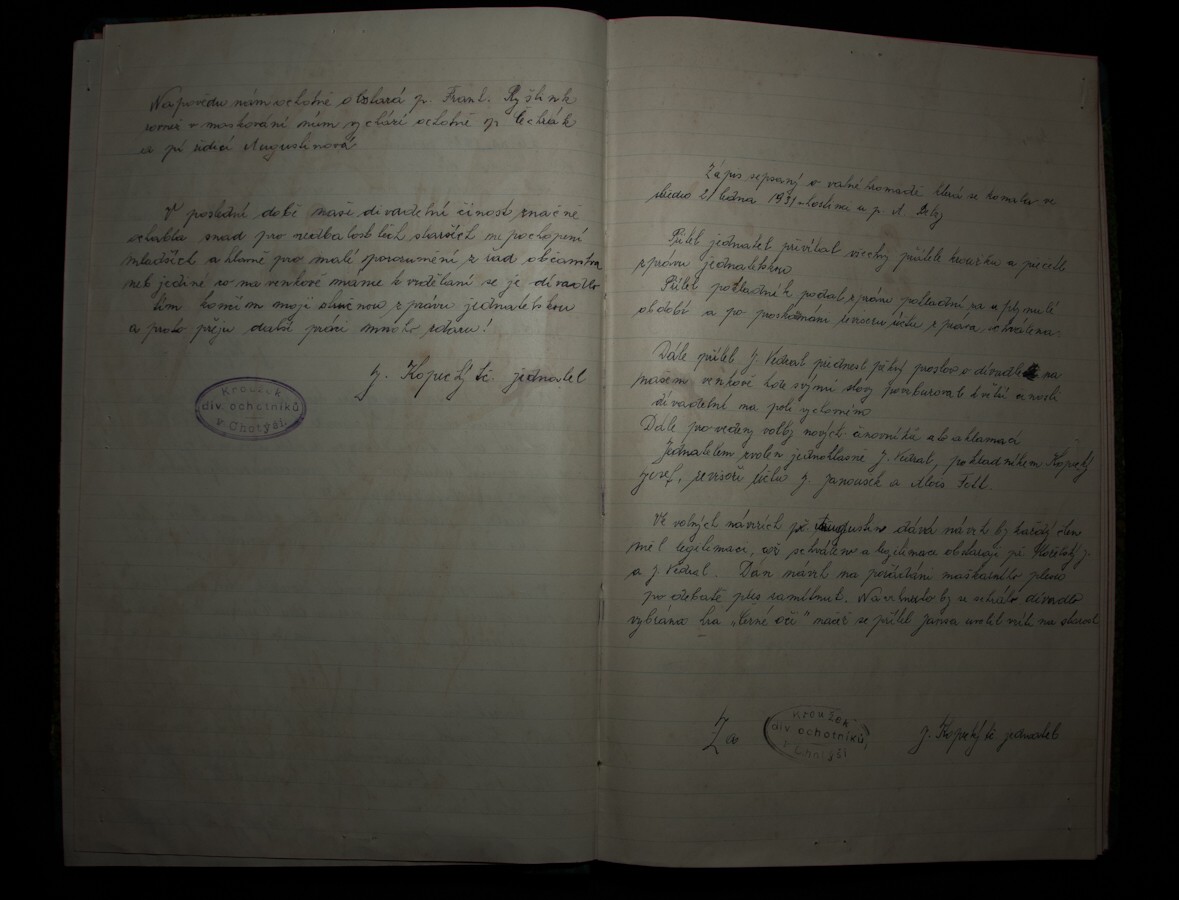 Nápovědu nám ochotně obstará p. Frant. Ryšlink
rovněž v maskování nám vychází ochotně p. Čechrák
a pí řídící Augustinová
V poslední době naše divadelní činost značně
ochabla snad pro nedbalost těch starších nepochopení
mladších a hlavně pro malé sporozumění z řad občanstva
neb jediné co na venkově máme k vzdělání se je divadlo
tím končím moji stručnou zprávu jednatelskou
a proto přeju další práci mnoho zdaru!
J. Kopecký tč. jednatel
Kroužek
div. ochotníků
v Chotýši.
Zápis sepsaný o valné hromadě která se konala ve
středu 21 ledna 1931 v hostinci u p. A.
Přítel jednatel přivítal všechny přátele kroužku a přečetl
zprávu jednatelskou
Přítel pokladník podal zprávu pokladní za uplynulé
období a po prozkoumání revisorů účtů zpráva schválena.
Dále přítel J. Vedral přednesl pěkný proslov o divadle na
našem venkově kože svými slovy povzbuzovat k větší činosti
divadelní na poli výchovném
Dále provedeny volby nových činovníků a to aklamací
Jednatelem zvolen jednohlasně J. Vedral, pokladníkem Kopecký
Josef, revisoři účtů J. Janousek a Alois Fell.
Ve volných návrzích př. Augustin dává návrh by každý člen
měl legitimaci, což schváleno a legitimace obstarají př. J.
a J. Vedral. Dán návrh na pořádání maškarního plesu
po debatě ples zamítnut. Navrhnuto by se sehrálo divadlo
vybrána hra „Černé oči" načež se přítel Janva uvolil vzíti na starost
Za
Kroužek
div. ochotníků,
v Chotýši
J. Kopecký tč jednatel